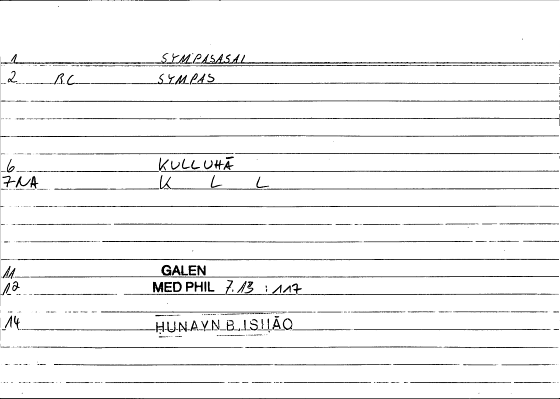 1 SYMPASASAI
2 RC SYMPAS
6 KULLUHĀ
7NA K L L
11 GALEN
12 MED PHIL 7.13 : 117
14 HUNAYN B. ISḤĀQ